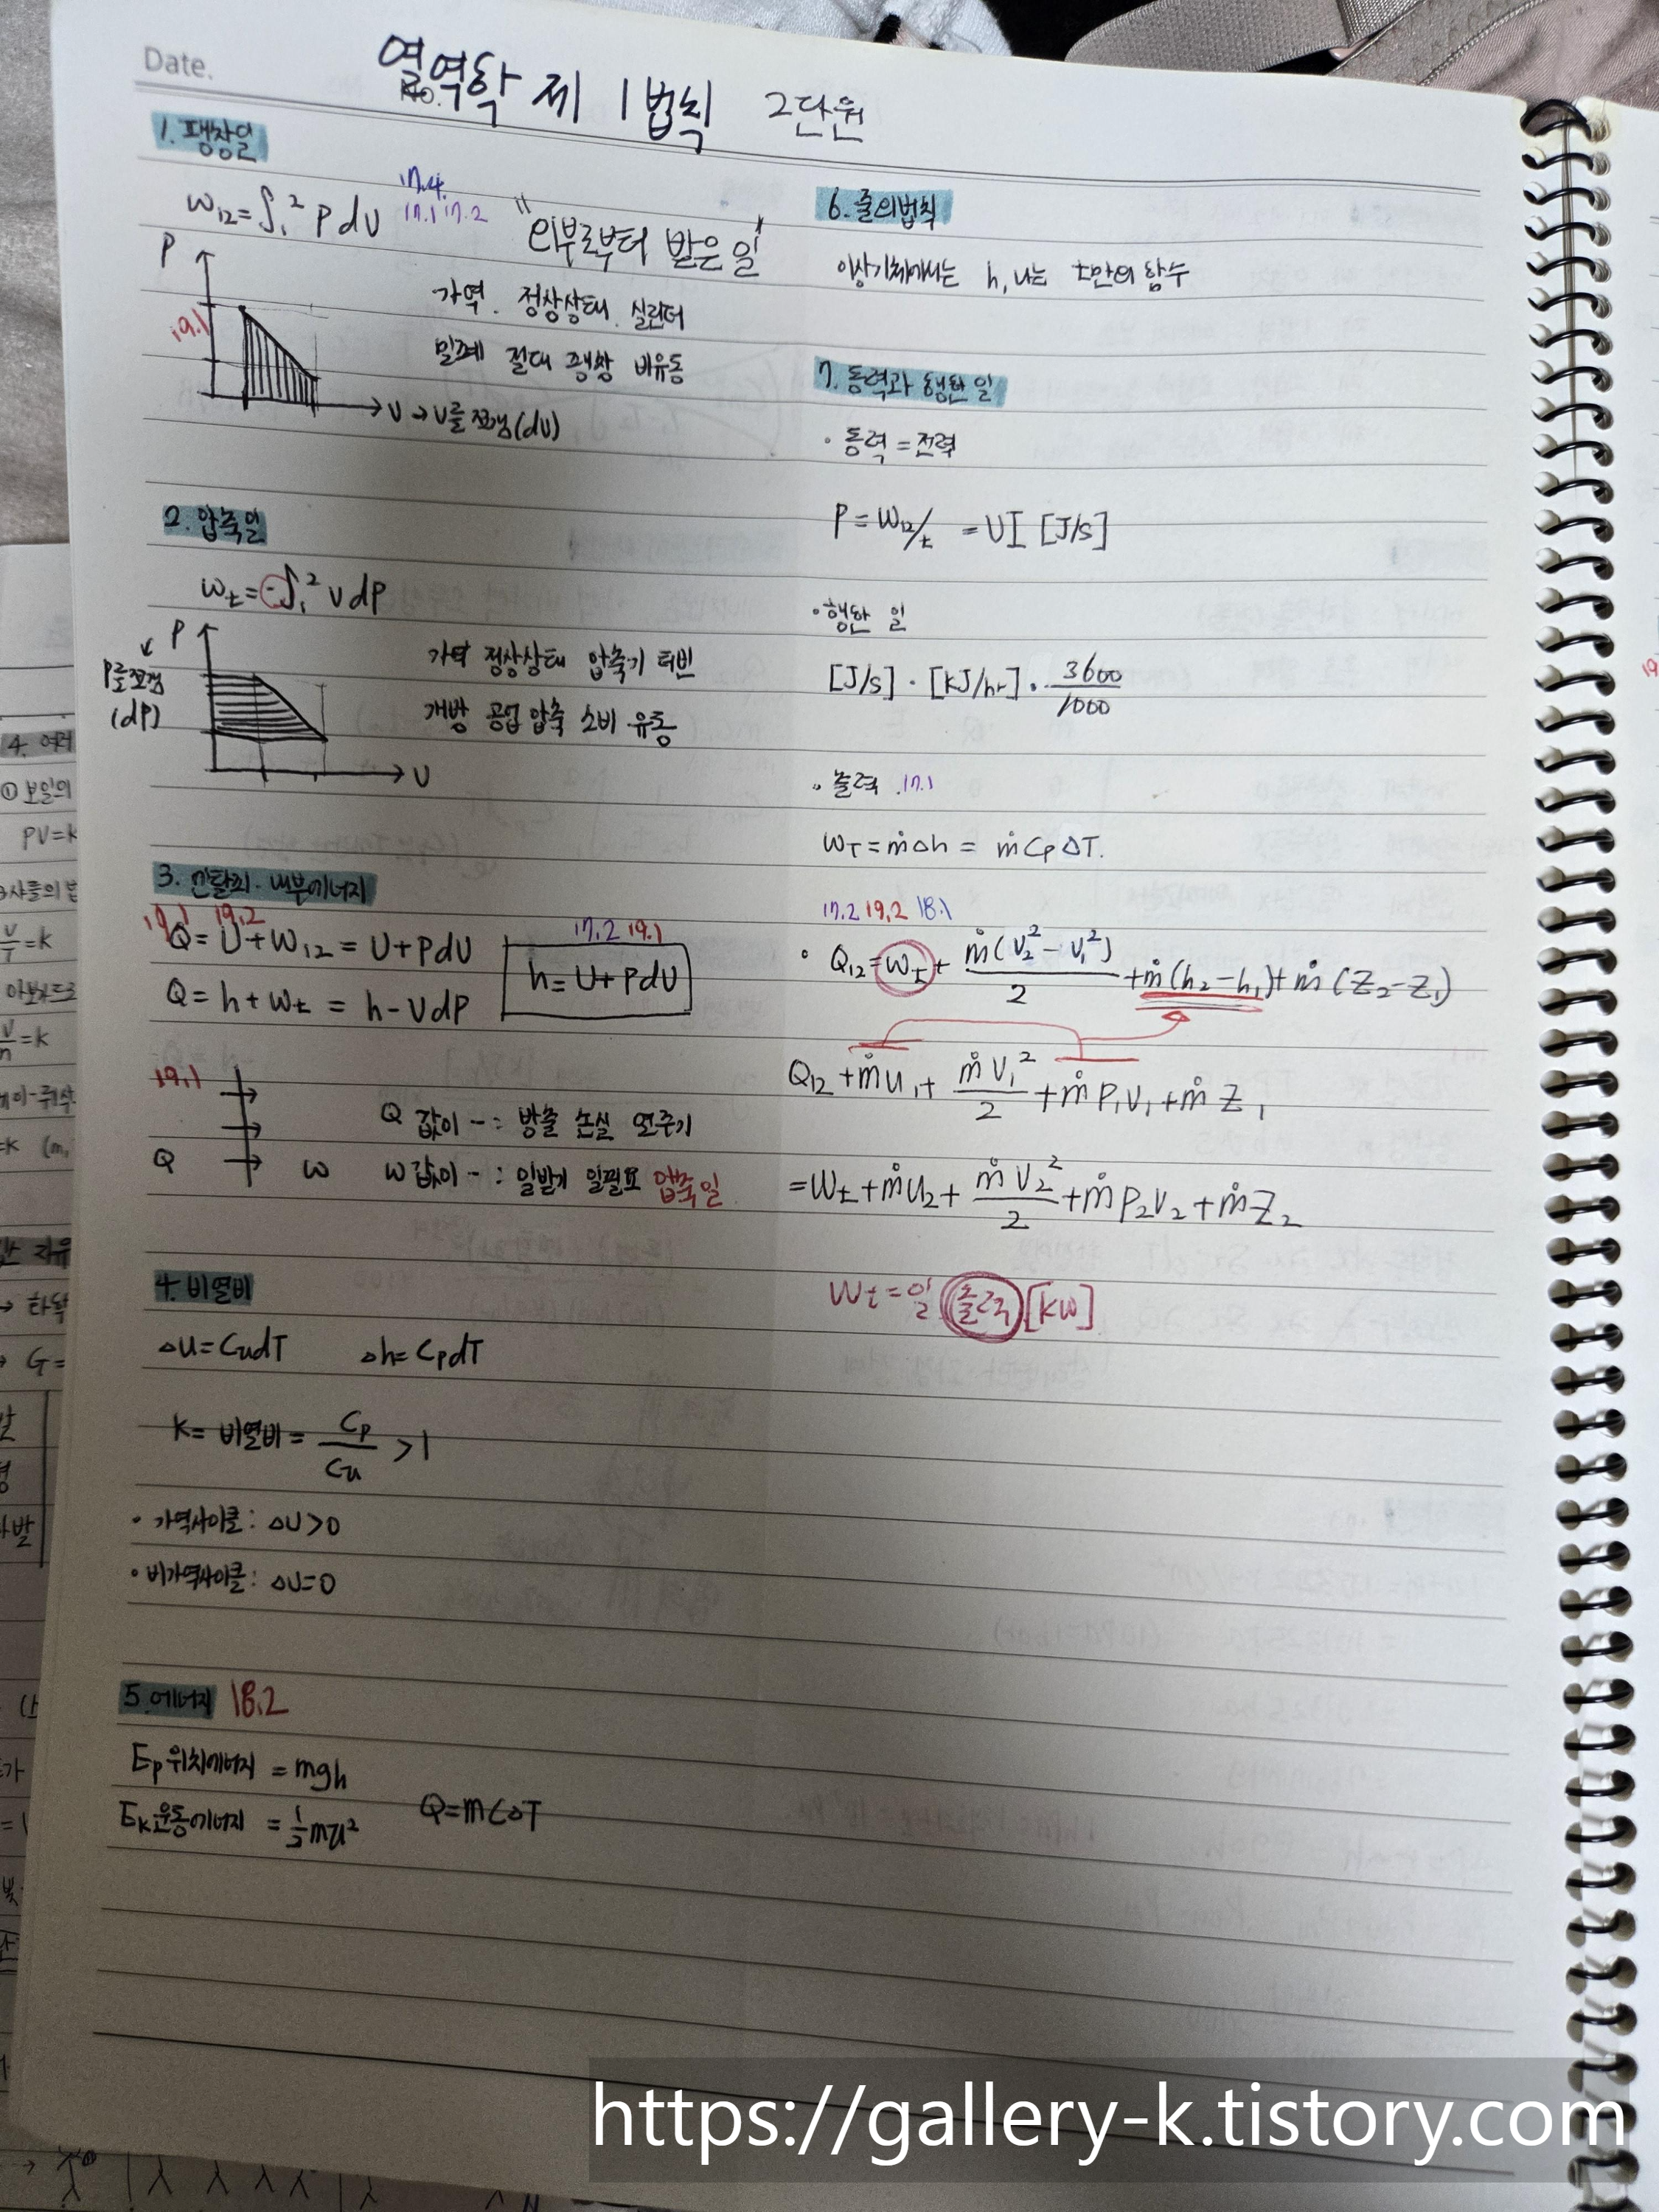 Date.
No.
열역학 제 1법칙 2단원
1. 팽창일
W12=∫₁² P dV
17.4
17.1 17.2
"외부로부터 받은 일"
P
19.1
V → V를 쪼갬(dV)
가역. 정상상태. 실린더
밀폐 절대 팽창 비유동
2. 압축일
Wt=-∫₁² V dP
P
P를 쪼갬
(dP)
V
가역 정상상태 압축기 터빈
개방 공업 압축 소비 유동
3. 엔탈피·내부에너지
17.1 19.2
Q= U+W12 = U+PdV
Q= h+Wt = h-VdP
17.2 19.1
h= U+PdV
19.1
Q W
Q 값이 - : 방출 손실
W 값이 - : 일받기 일필요 압축일
4. 비열비
△U=CudT △h=CpdT
K= 비열비= Cp/Cu >1
· 가역사이클: △U>0
· 비가역사이클: △U=0
5. 에너지 18.2
Ep 위치에너지 = mgh
Ek 운동에너지 = 1/2 mu²
Q=mC△T
6. 줄의법칙
이상기체에서는 h, u는 t만의 함수
7. 동력과 행한 일
· 동력=전력
P=W12/t =VI [J/s]
· 행한 일
[J/s] · [kJ/hr] · 3600/1000
· 출력 17.1
WT=ṁ△h = ṁCp△T.
17.2 19.2 18.1
· Q12=Wt+ ṁ(V₂²-V₁²)/2 +ṁ(h₂-h₁)+ṁ(Z₂-Z₁)
Q12+ṁu₁+ ṁV₁²/2 +ṁP₁V₁+ṁZ₁
=Wt+ṁu₂+ ṁV₂²/2 +ṁP₂V₂+ṁZ₂
Wt=일 출력 [kW]
4. 여러
① 보일의
PV=K
샤를의 법
V/T=K
V/n=K
=K (m,
→ G=
https://gallery-k.tistory.com